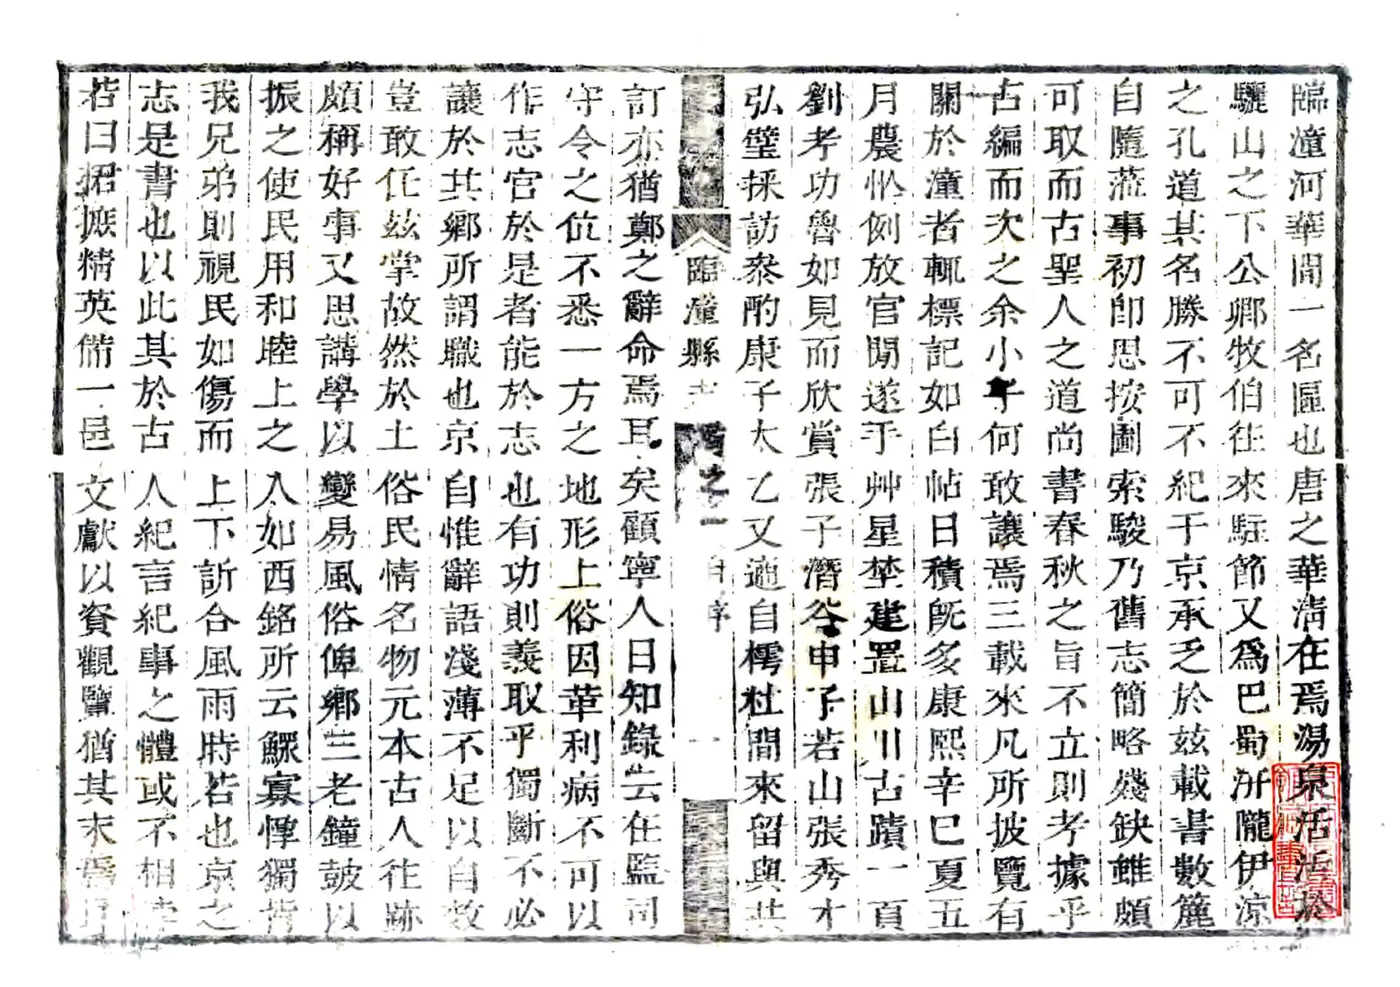 臨潼河華間一名區也唐之華清在焉湯泉活活於
驪山之下公卿牧伯往來駐節又為巴蜀汧隴伊涼
之孔道其名勝不可不紀于京承乏於茲載書數簏
自隨蒞事初卽思按圖索駿乃舊志簡略殘缺雖頗
可取而古聖人之道尚書春秋之旨不立則考據乎
古編而次之余小子何敢讓焉三載來凡所披覽有
關於潼者輒標記如白帖日積旣多康熙辛巳夏五
月農忙例放官閒遂手艸星埜建置山川古蹟一頁
劉孝功魯如見而欣賞張子潛谷申子若山張秀才
弘璧採訪叅酌康子太乙又適自樗杜間來留與共
臨潼縣志
之一
自序
一
訂亦猶鄭之辭命焉耳矣顧寧人日知錄云在監司
守令之位不悉一方之地形土俗因革利病不可以
作志官於是者能於志也有功則義取乎獨斷不必
讓於其鄉所謂職也京自惟辭語淺薄不足以自敘
豈敢任茲掌故然於土俗民情名物元本古人往跡
頗稱好事又思講學以變易風俗俾鄉三老鐘鼓以
振之使民用和睦上之人如西銘所云鰥寡惸獨皆
我兄弟則視民如傷而上下訢合風雨時若也京之
志是書也以此其於古人紀言紀事之體或不相
若曰捃摭精英備一邑文獻以資觀覽猶其末焉